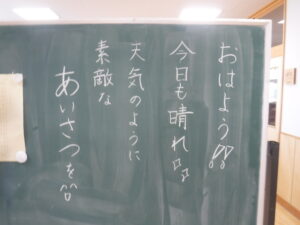 おはよう!!
今日も晴れ♪♪
天気のように
素敵な
あいさつを^^